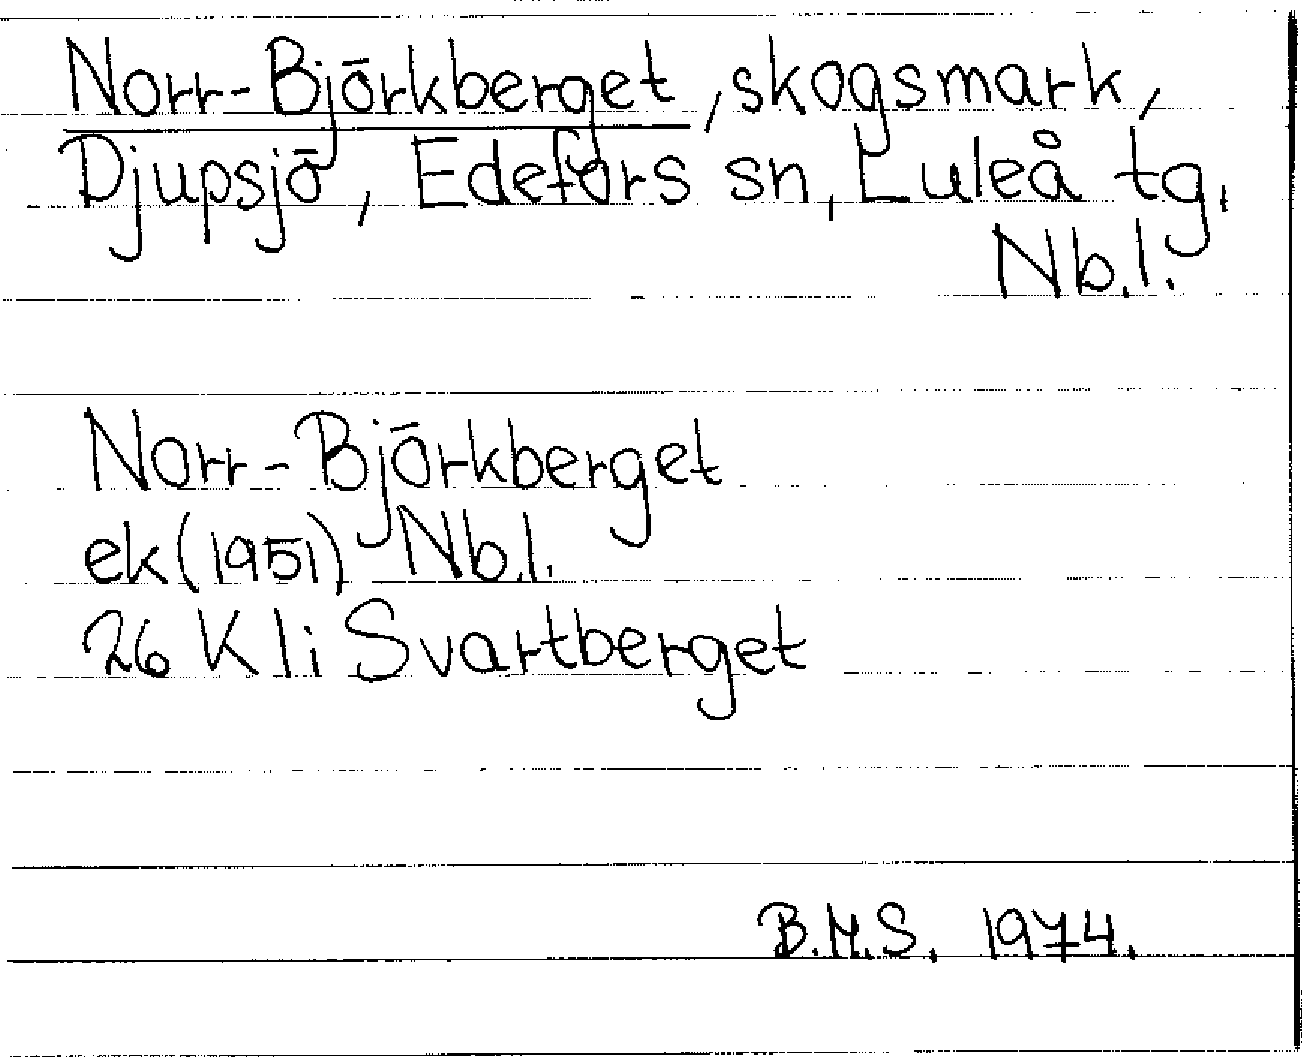 Norr-Björkberget, skogsmark,
Djupsjö, Edefors sn, Luleå tg.
Nb.l.
Norr-Björkberget
ek(1951) Nb.l.
26 K li Svartberget
B.M.S. 1974.